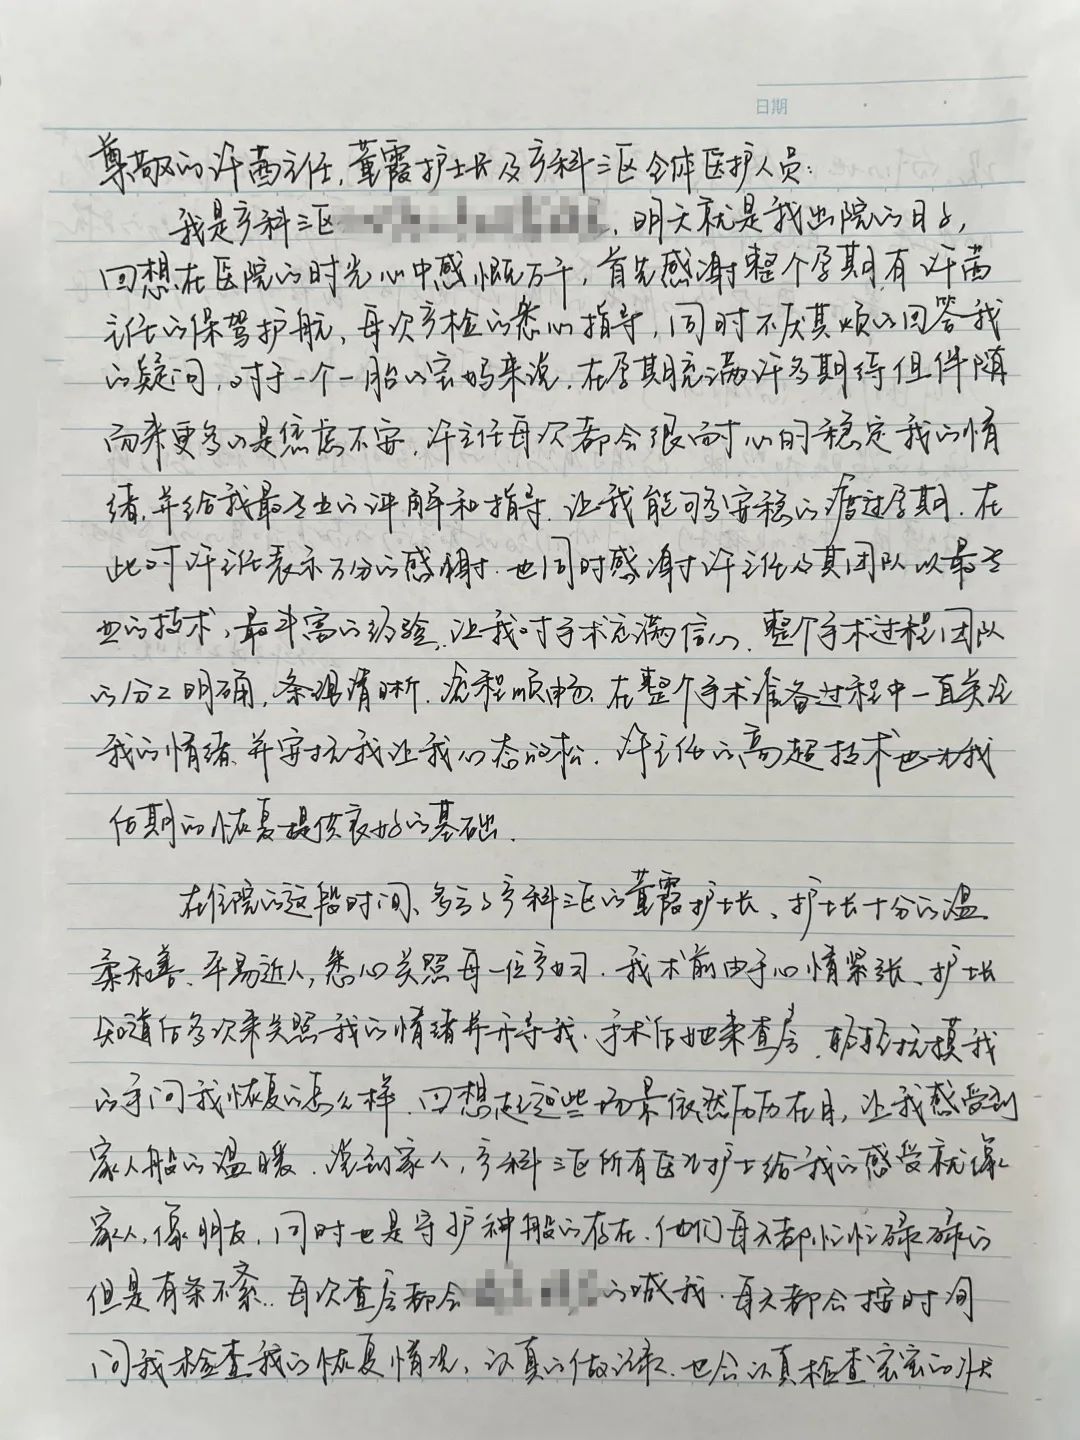 日期
尊敬的许茜主任，董霞护士长及产科三区全体医护人员：
我是产科三区，明天就是我出院的日子，
回想在医院的时光心中感慨万千，首先感谢整个孕期有许茜
主任的保驾护航，每次产检的悉心指导，同时不厌其烦的回答我
的疑问，对于一个一胎的宝妈来说，在孕期充满许多期待但伴随
而来更多的是焦虑不安，许主任每次都会很耐心的稳定我的情
绪，并给我最专业的讲解和指导，让我能够安稳的度过孕期，在
此对许主任表示万分的感谢，也同时感谢许主任及其团队以最专
业的技术，最丰富的经验，让我对手术充满信心，整个手术过程团队
的分工明确，条理清晰，流程顺畅，在整个手术准备过程中一直关注
我的情绪，并安抚我让我心态放松，许主任的高超技术也为我
后期的恢复提供良好的基础。
在住院的这段时间、多亏了产科三区的董霞护士长、护士长十分的温
柔和善、平易近人，悉心关照每一位产妇．我术前由于心情紧张、护士长
知道后多次来关照我的情绪并开导我．手术后她来查房，轻轻抚摸我
的手问我恢复的怎么样，回想起这些场景依然历历在目，让我感受到
家人般的温暖．说到家人，产科三区所有医生护士给我的感受就像
家人，像朋友，同时也是守护神般的存在，他们每天都忙忙碌碌的
但是有条不紊．每次查房都会的喊我．每天都会按时间
问我检查我的恢复情况，认真的做记录，也会认真检查宝宝的状